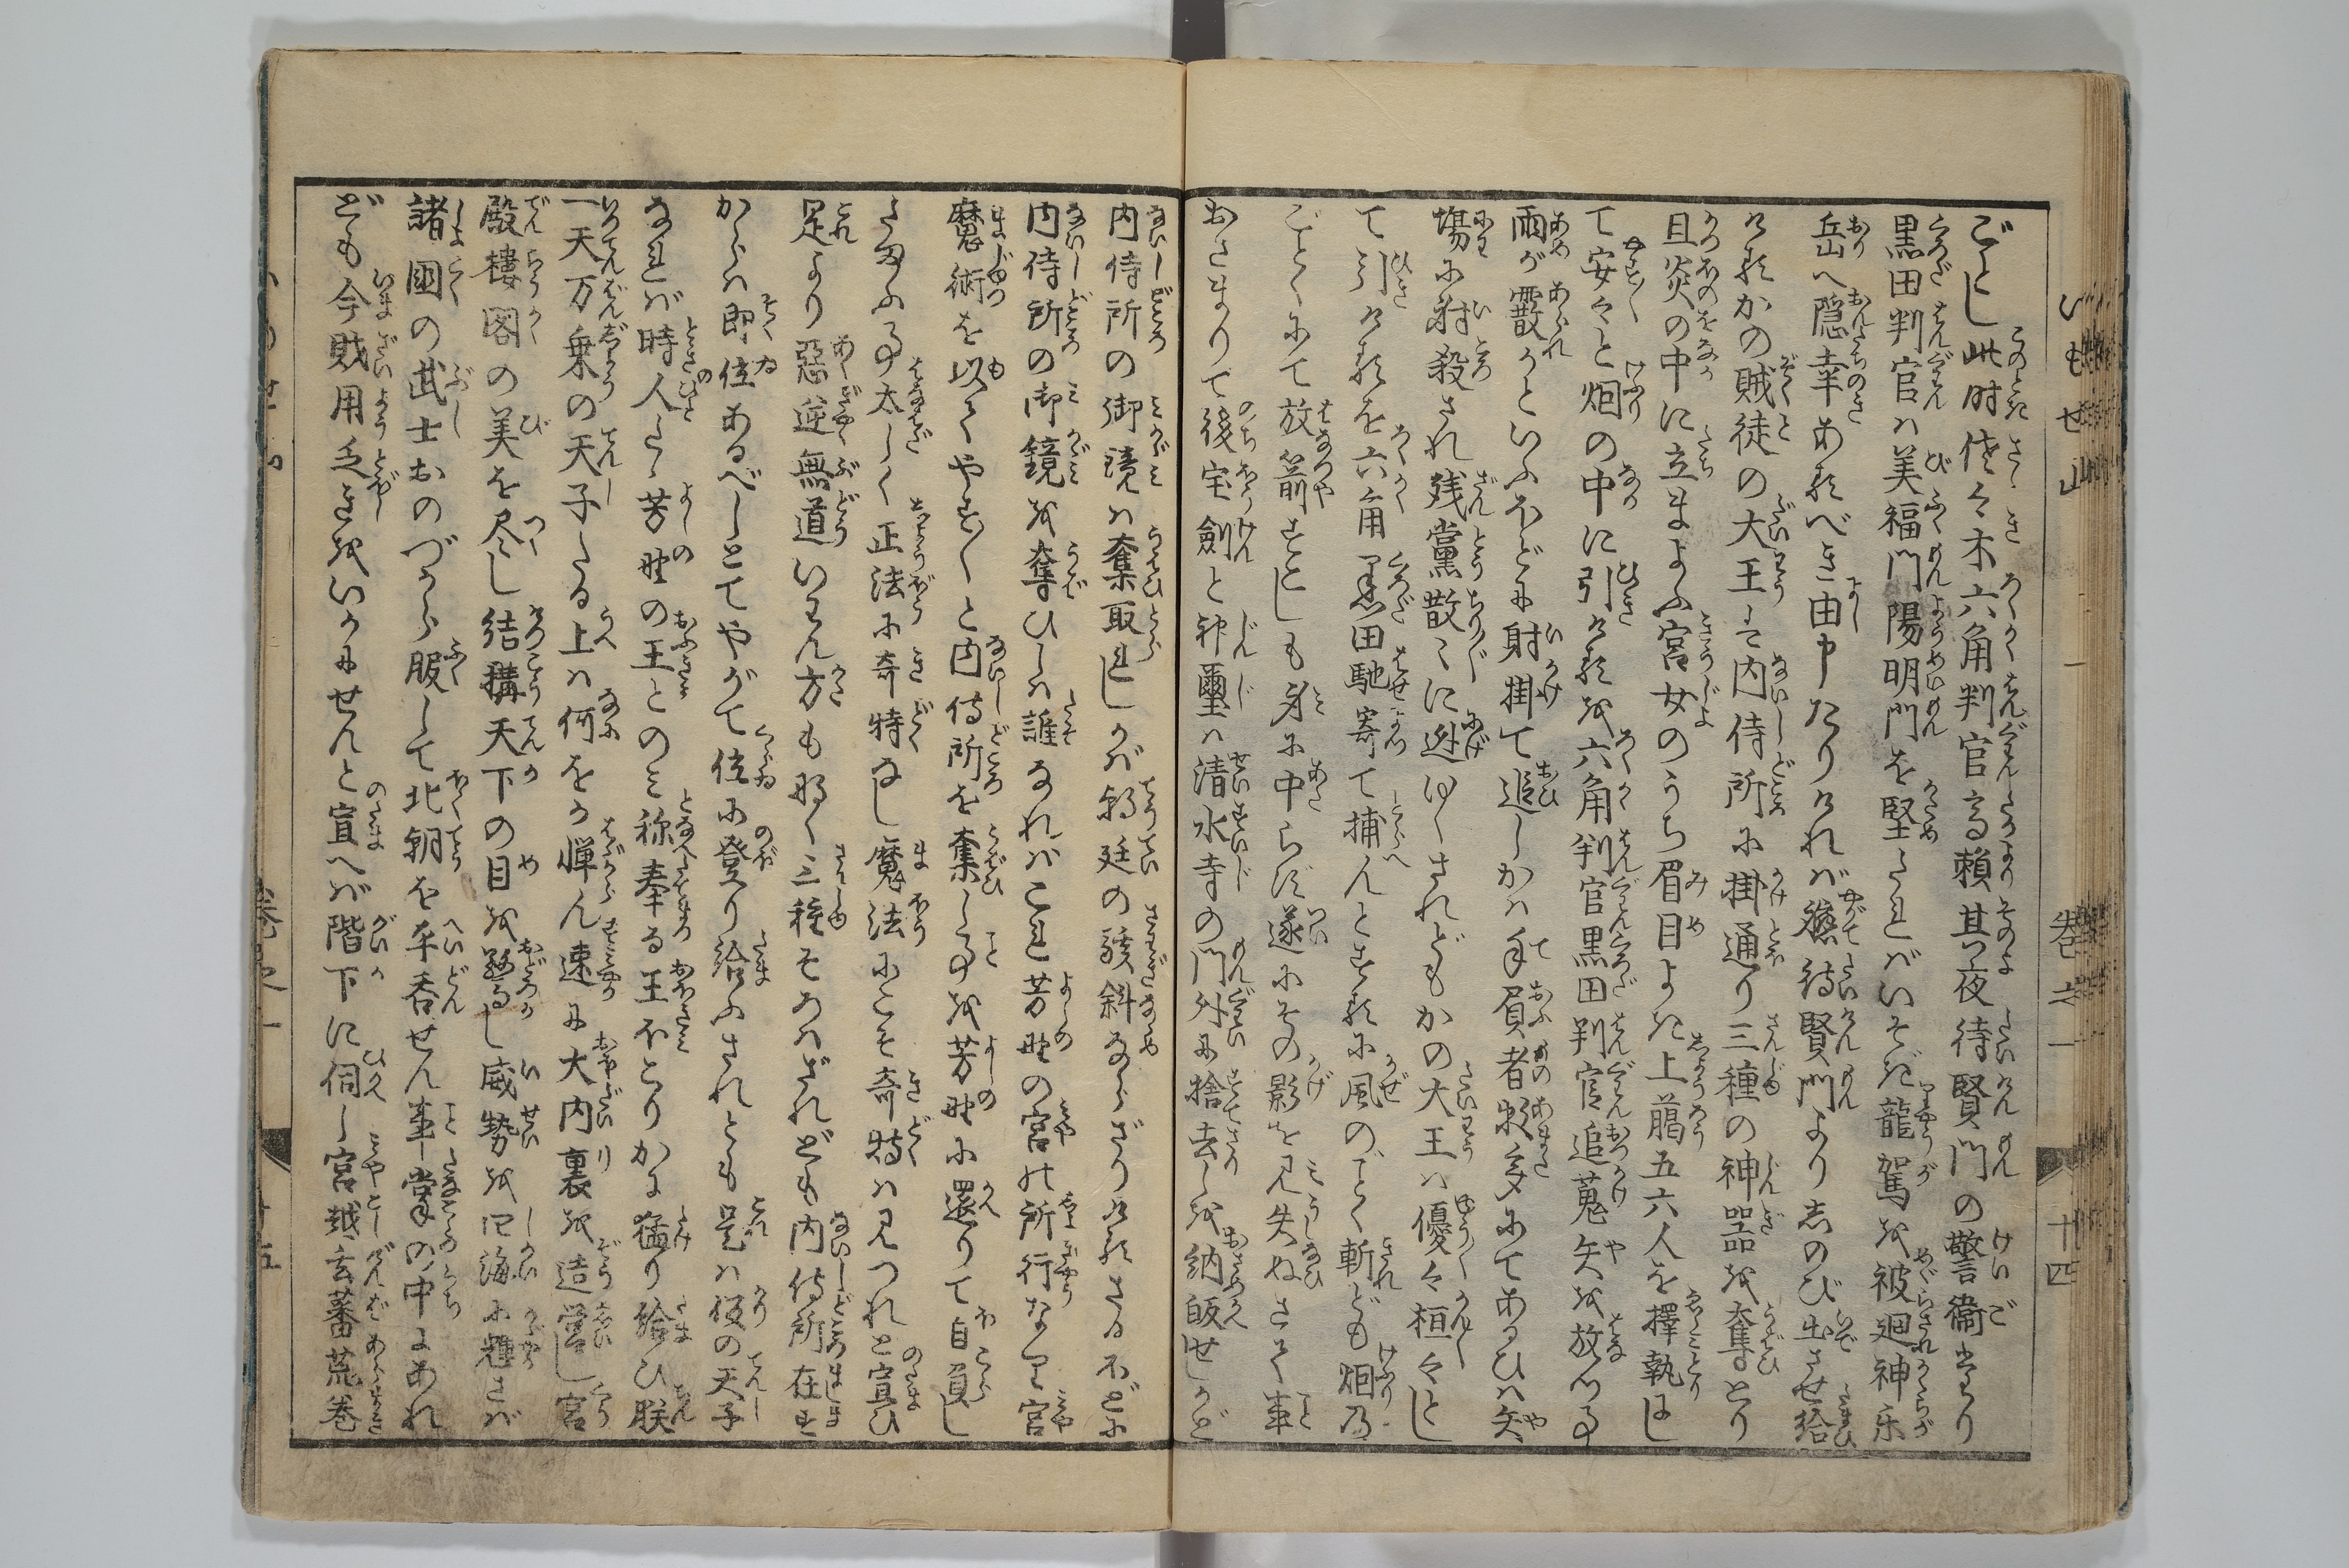 いもせ山 巻之一 十四
ごとし此時佐々木六角判官高頼其夜待賢門の警衞たり
黒田判官ハ美福門陽明門を堅たれバいそぎ龍駕を被廻神楽
岳へ隠幸あるべき由申たりけれバ軈待賢門より志のび出させ給
けるかの賊徒の大王ハ内侍所に掛通り三種の神器を奪とり
且炎の中に立まよふ宮女のうち眉目よき上﨟五六人を擇執にし
て安々と烟の中に引けるを六角判官黒田判官追蒐矢を放つる
雨か霰かといふほどに射掛て追しかハ手負者数多にてあるひハ矢
塲に射殺され残黨散々に迯ゆくされどもかの大王ハ優々桓々とし
て引けるを六角黒田馳寄て捕んとするに風のごとく斬ども烟の
ごとくにて放箭すとしも身に中らず遂にその影を見失ぬさて事
おさまりて後宝劍と神璽ハ清水寺の門外に捨去しを納皈せしかど
内侍所の御鏡ハ奪取れしかバ朝廷の騒斜ならざりけるさるほどに
内侍所の御鏡を奪ひしハ誰なれバこれ芳野の宮の所行なり宮
魔術を以てやす〳〵と内侍所を奪し事を芳野に還りて自負し
たまふ事太しく正法に奇特なし魔法にこそ奇特ハ見つれと宣ひ
是より惡逆無道いはん方も那く三種そろハざれども内侍所在す
からハ即位あるべしとてやがて位に登り給ふされども是ハ仮の天子
なれバ時人たゝ芳野の王とのミ称奉る王ほこりかに猛り給ひ朕
一天万乗の天子たる上ハ何をか憚ん速に大内裏を造営し宮
殿樓閣の美を尽し結構天下の目を驚し威勢を四海に輝さバ
諸國の武士おのづから服して北朝を平呑せん事掌の中にあれ
ども今財用乏きをいかにせんと宣へバ階下に伺し宮越玄蕃荒巻